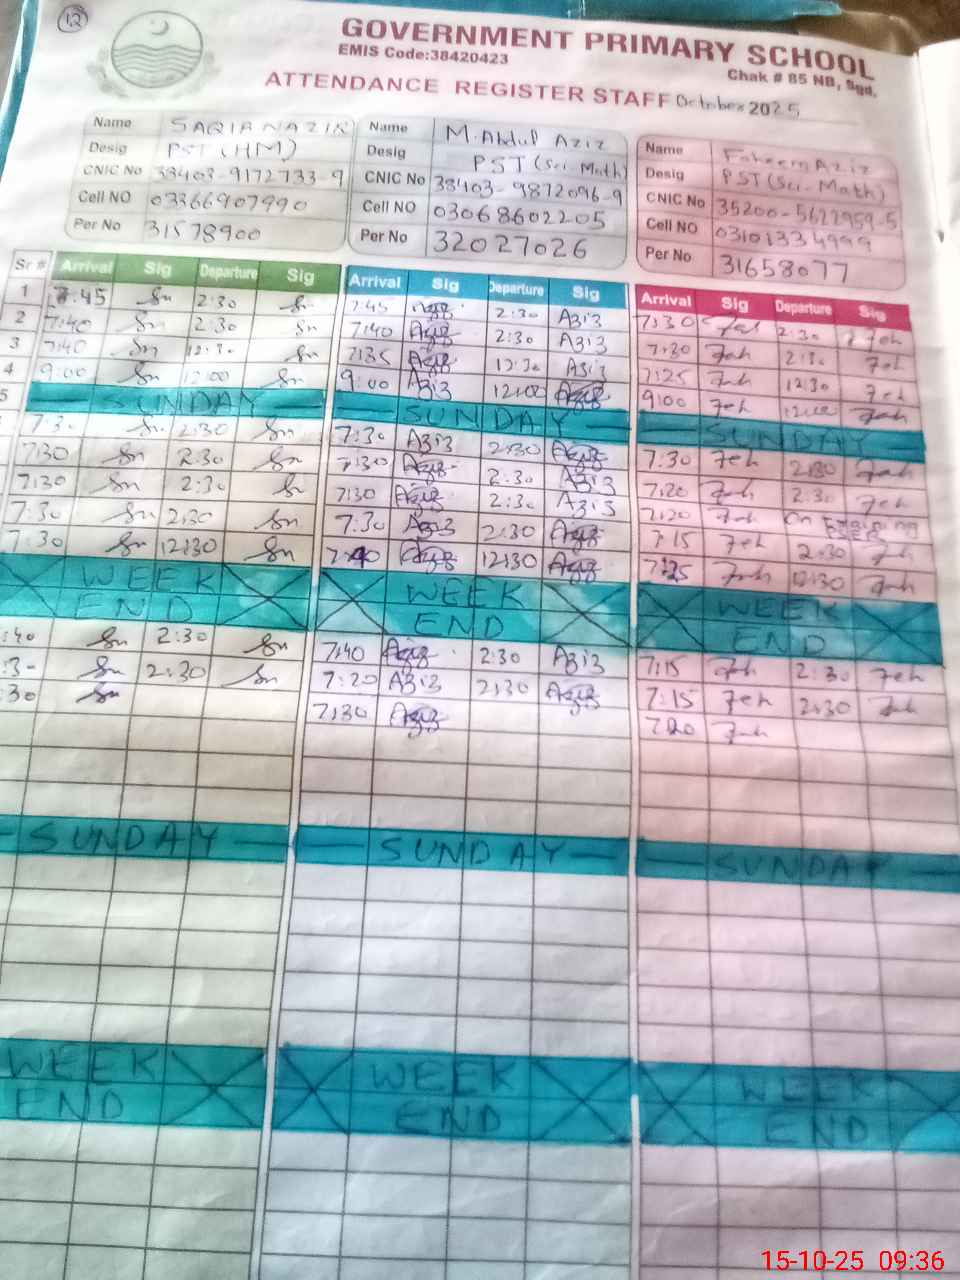 12
GOVERNMENT PRIMARY SCHOOL
EMIS Code:38420423
Chak # 85 NB, Sgd.
ATTENDANCE REGISTER STAFF October 2025
Name SAQIA NAZIR Name M. Abdul Aziz Name Faheem Aziz
Desig PST (HM) Desig PST (Sci-Math) Desig PST (Sci-Math)
CNIC No 33403-9172733-9 CNIC No 38403-9872096-9 CNIC No 35200-5622959-5
Cell NO 03366907990 Cell NO 03068602205 Cell NO 03101334999
Per No 31578900 Per No 32027026 Per No 31658077
Sr # Arrival Sig Departure Sig Arrival Sig Departure Sig Arrival Sig Departure Sig
1 7:45 Sn 2:30 Sn 7:45 Aziz 2:30 Aziz 7:30 Fah 2:30 Feh
2 7:40 Sn 2:30 Sn 7:40 Aziz 2:30 Aziz 7:30 Fah 2:30 Feh
3 7:40 Sn 12:30 Sn 7:35 Aziz 12:30 Aziz 7:25 Fah 12:30 Feh
4 9:00 Sn 12:00 Sn 9:00 Aziz 12:00 Aziz 9:00 Feh 12:00 Fah
5 SUNDAY SUNDAY SUNDAY
7:30 Sn 2:30 Sn 7:30 Aziz 2:30 Aziz 7:30 Feh 2:30 Fah
7:30 Sn 2:30 Sn 7:30 Aziz 2:30 Aziz 7:20 Fah 2:30 Feh
7:30 Sn 2:30 Sn 7:30 Aziz 2:30 Aziz 7:20 Fah On
7:30 Sn 2:30 Sn 7:30 Aziz 2:30 Aziz 7:15 Feh 2:30 Fah
7:30 Sn 12:30 Sn 7:40 Aziz 12:30 Aziz 7:25 Fah 12:30 Fah
WEEK WEEK WEEK
END END END
:40 Sn 2:30 Sn 7:40 Aziz 2:30 Aziz 7:15 Fah 2:30 Feh
:3- Sn 2:30 Sn 7:20 Aziz 2:30 Aziz 7:15 Feh 2:30 Fah
:30 Sn 7:30 Aziz 7:20 Fah
SUNDAY SUNDAY SUNDAY
WEEK WEEK WEEK
END END END
15-10-25 09:36